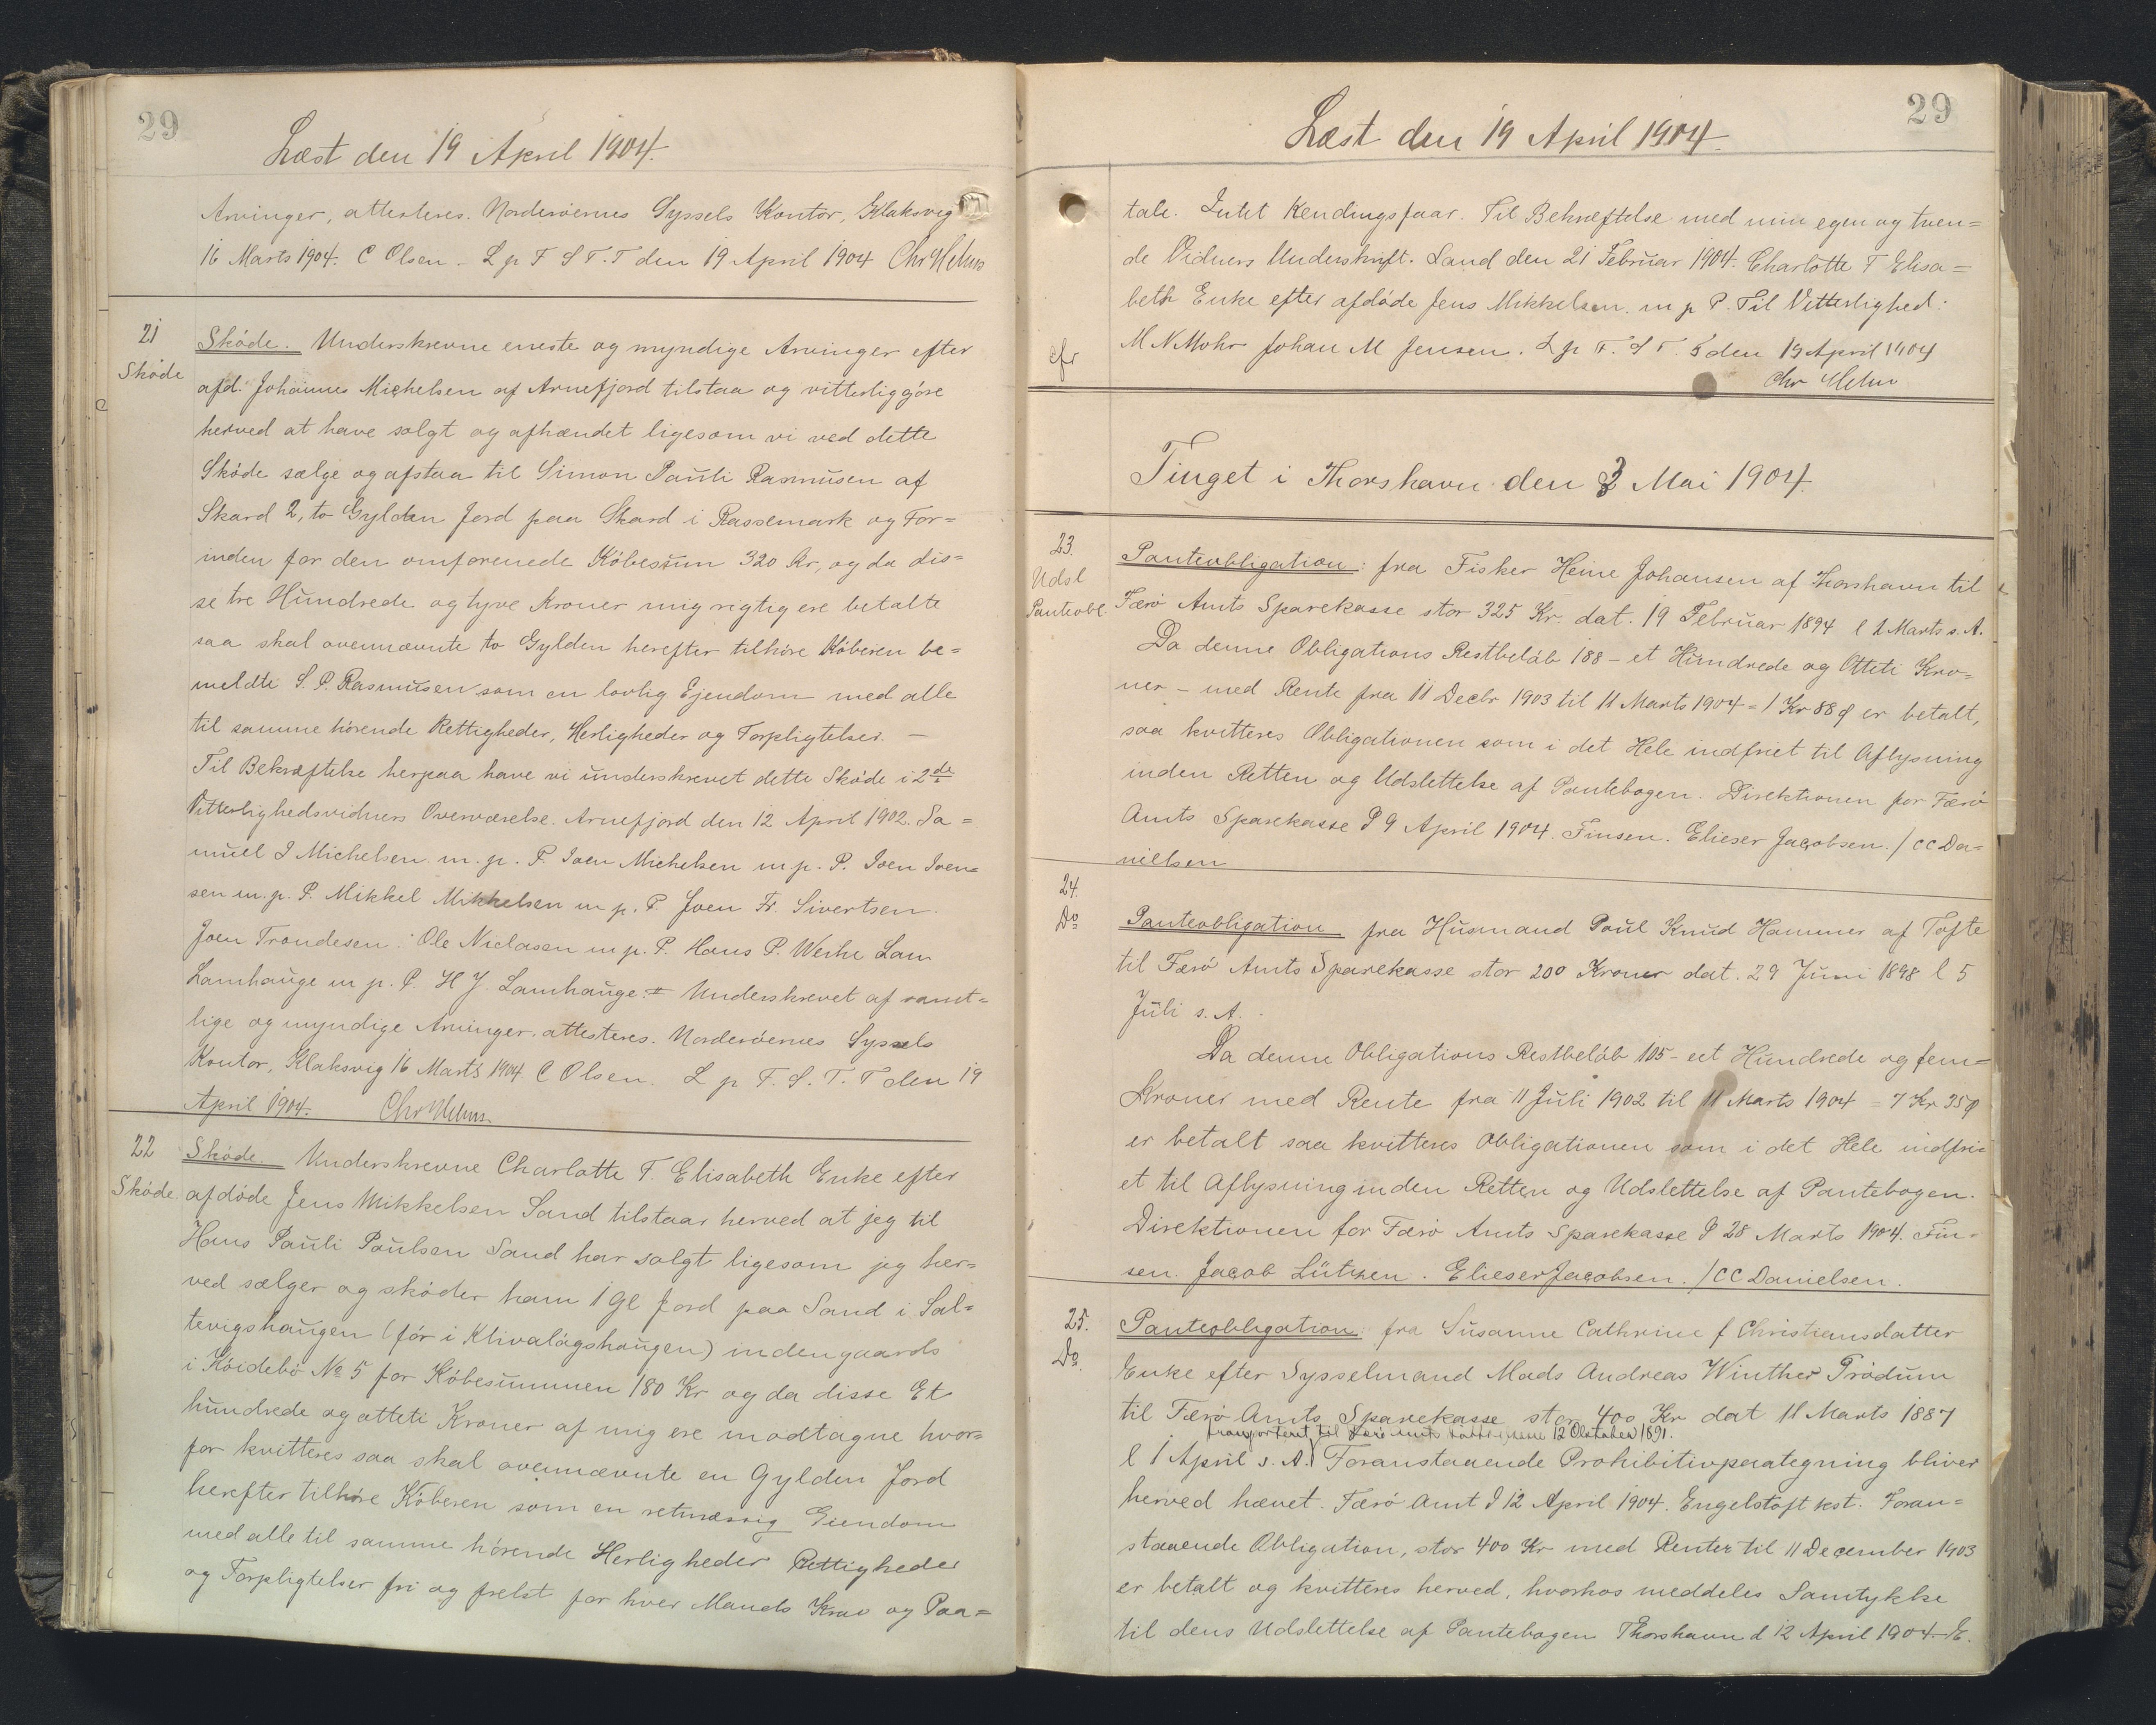 29
Læst den 19 April 1904.
Arvinger, attesteres. Norderöernes Syssels Kontor, Klaksvig
16 Marts 1904. C Olsen - L p F S T. T den 19 April 1904 Chr Helms
21
Sköde
Sköde. Underskrevne eneste og myndige Arvinger efter
afd. Johannes Michelsen af Arnefjord tilstaa og vitterliggjöre
herved at have solgt og afhændet ligesom vi ved dette
Sköde sælge og afstaa til Simon Pauli Rasmusen af
Skard 2, to Gylden Jord paa Skard i Rassemark og For=
inden for den omforenede Köbesum 320 Kr, og da dis=
se tre Hundrede og tyve Kroner mig rigtig ere betalte
saa skal ovennævnte to Gylden herefter tilhöre Köberen be=
meldte S. P. Rasmusen som en lovlig Ejendom med alle
til samme hörende Rettigheder, Herligheder og Forpligtelser. -
Til Bekræftelse herpaa have vi underskrevet dette Sköde i 2de
Vitterlighedsvidners Overværelse. Arnefjord den 12 April 1902. Sa=
muel J Michelsen m. p. P. Joen Michelsen m p. P. Joen Joen=
sen m. p. P. Mikkel Mikkelsen m p. P. Joen Fr. Sivertsen.
Joen Trondesen. Ole Niclasen m p. P. Hans P. Weihe Lam
Lamhauge m p. P. H J. Lamhauge. = Underskrevet af samt=
lige og myndige Arvinger, attesteres. Norderöernes Syssels
Kontor, Klaksvig 16 Marts 1904 C Olsen. L p F. S. T. T den 19
April 1904. Chr Helms.
22
Sköde.
Sköde. Underskrevne Charlotte F. Elisabeth Enke efter
afdöde Jens Mikkelsen Sand tilstaar herved at jeg til
Hans Pauli Poulsen Sand har solgt ligesom jeg her=
ved sælger og sköder ham 1 Gl Jord paa Sand i Sal=
tevigshaugen (för i Klivalágshaugen) indengaards
i Köidebö No 5 for Köbesummen 180 Kr og da disse Et
hundrede og otteti Kroner af mig ere modtagne hvor=
for kvitteres saa skal ovennævnte en Gylden Jord
herefter tilhöre Köberen som en retmæssig Eiendom
med alle til samme hörende Herligheder Rettigheder
og Forpligtelser fri og frelst for hver Mands Krav og Paa=
29
Læst den 19 April 1904.
tale. Intet Kendingsfaar. Til Bekræftelse med min egen og tven=
de Vidners Underskrift. Sand den 21 Februar 1904. Charlotte F Elisa=
beth Enke efter afdöde Jens Mikkelsen. m p P. Til Vitterlighed:
M N Mohr Johan M Jensen. L p F. S T. T den 19 April 1904
Chr Helms
cfr
Tinget i Thorshavn den 3 Mai 1904.
23.
Udsl
Panteobl
Panteobligation: fra Fisker Heine Johansen af Thorshavn til
Færö Amts Sparekasse stor 325 Kr. dat. 19 Februar 1894 l 1 Marts s. A.
Da denne Obligations Restbeløb 188 - et Hundrede og Otteti Kro=
ner - med Rente fra 11 Decbr 1903 til 11 Marts 1904 = 1 Kr 88 ø er betalt,
saa kvitteres Obligationen som i det Hele indfriet til Aflysning
inden Retten og Udslettelse af Pantebogen. Direktionen for Færö
Amts Sparekasse d 9 April 1904. Finsen. Elieser Jacobsen. / CC Da=
nielsen
24.
Do
Panteobligation fra Husmand Poul Knud Hammer af Tofte
til Færö Amts Sparekasse stor 200 Kroner dat. 29 Juni 1898 l 5
Juli s. A.
Da denne Obligations Restbeløb 105 - eet Hundrede og fem=
Kroner med Rente fra 11 Juli 1902 til 11 Marts 1904 = 7 Kr 35 ø
er betalt saa kvitteres Obligationen som i det Hele indfri=
et til Aflysning inden Retten og Udslettelse af Pantebogen.
Direktionen for Færö Amts Sparekasse d 28 Marts 1904. Fin=
sen. Jacob Lützen. Elieser Jacobsen. / CC Danielsen.
25.
Do.
Panteobligation: fra Susanne Cathrine f Christiansdatter
Enke efter Sysselmand Mads Andreas Winther Trödum
til Færö Amts Sparekasse stor 400 Kr dat 11 Marts 1887
transporteret til Færö Amts 12 Oktober 1891.
l 1 April s. A. Foranstaaende Prohibitivpaategning bliver
herved hævet. Færö Amt d 12 April 1904. Engelstoft kst. Foran=
staaende Obligation, stor 400 Kr med Renter til 11 December 1903
er betalt og kvitteres herved, hvorhos meddeles Samtykke
til dens Udslettelse af Pantebogen Thorshavn d 12 April 1904. E.